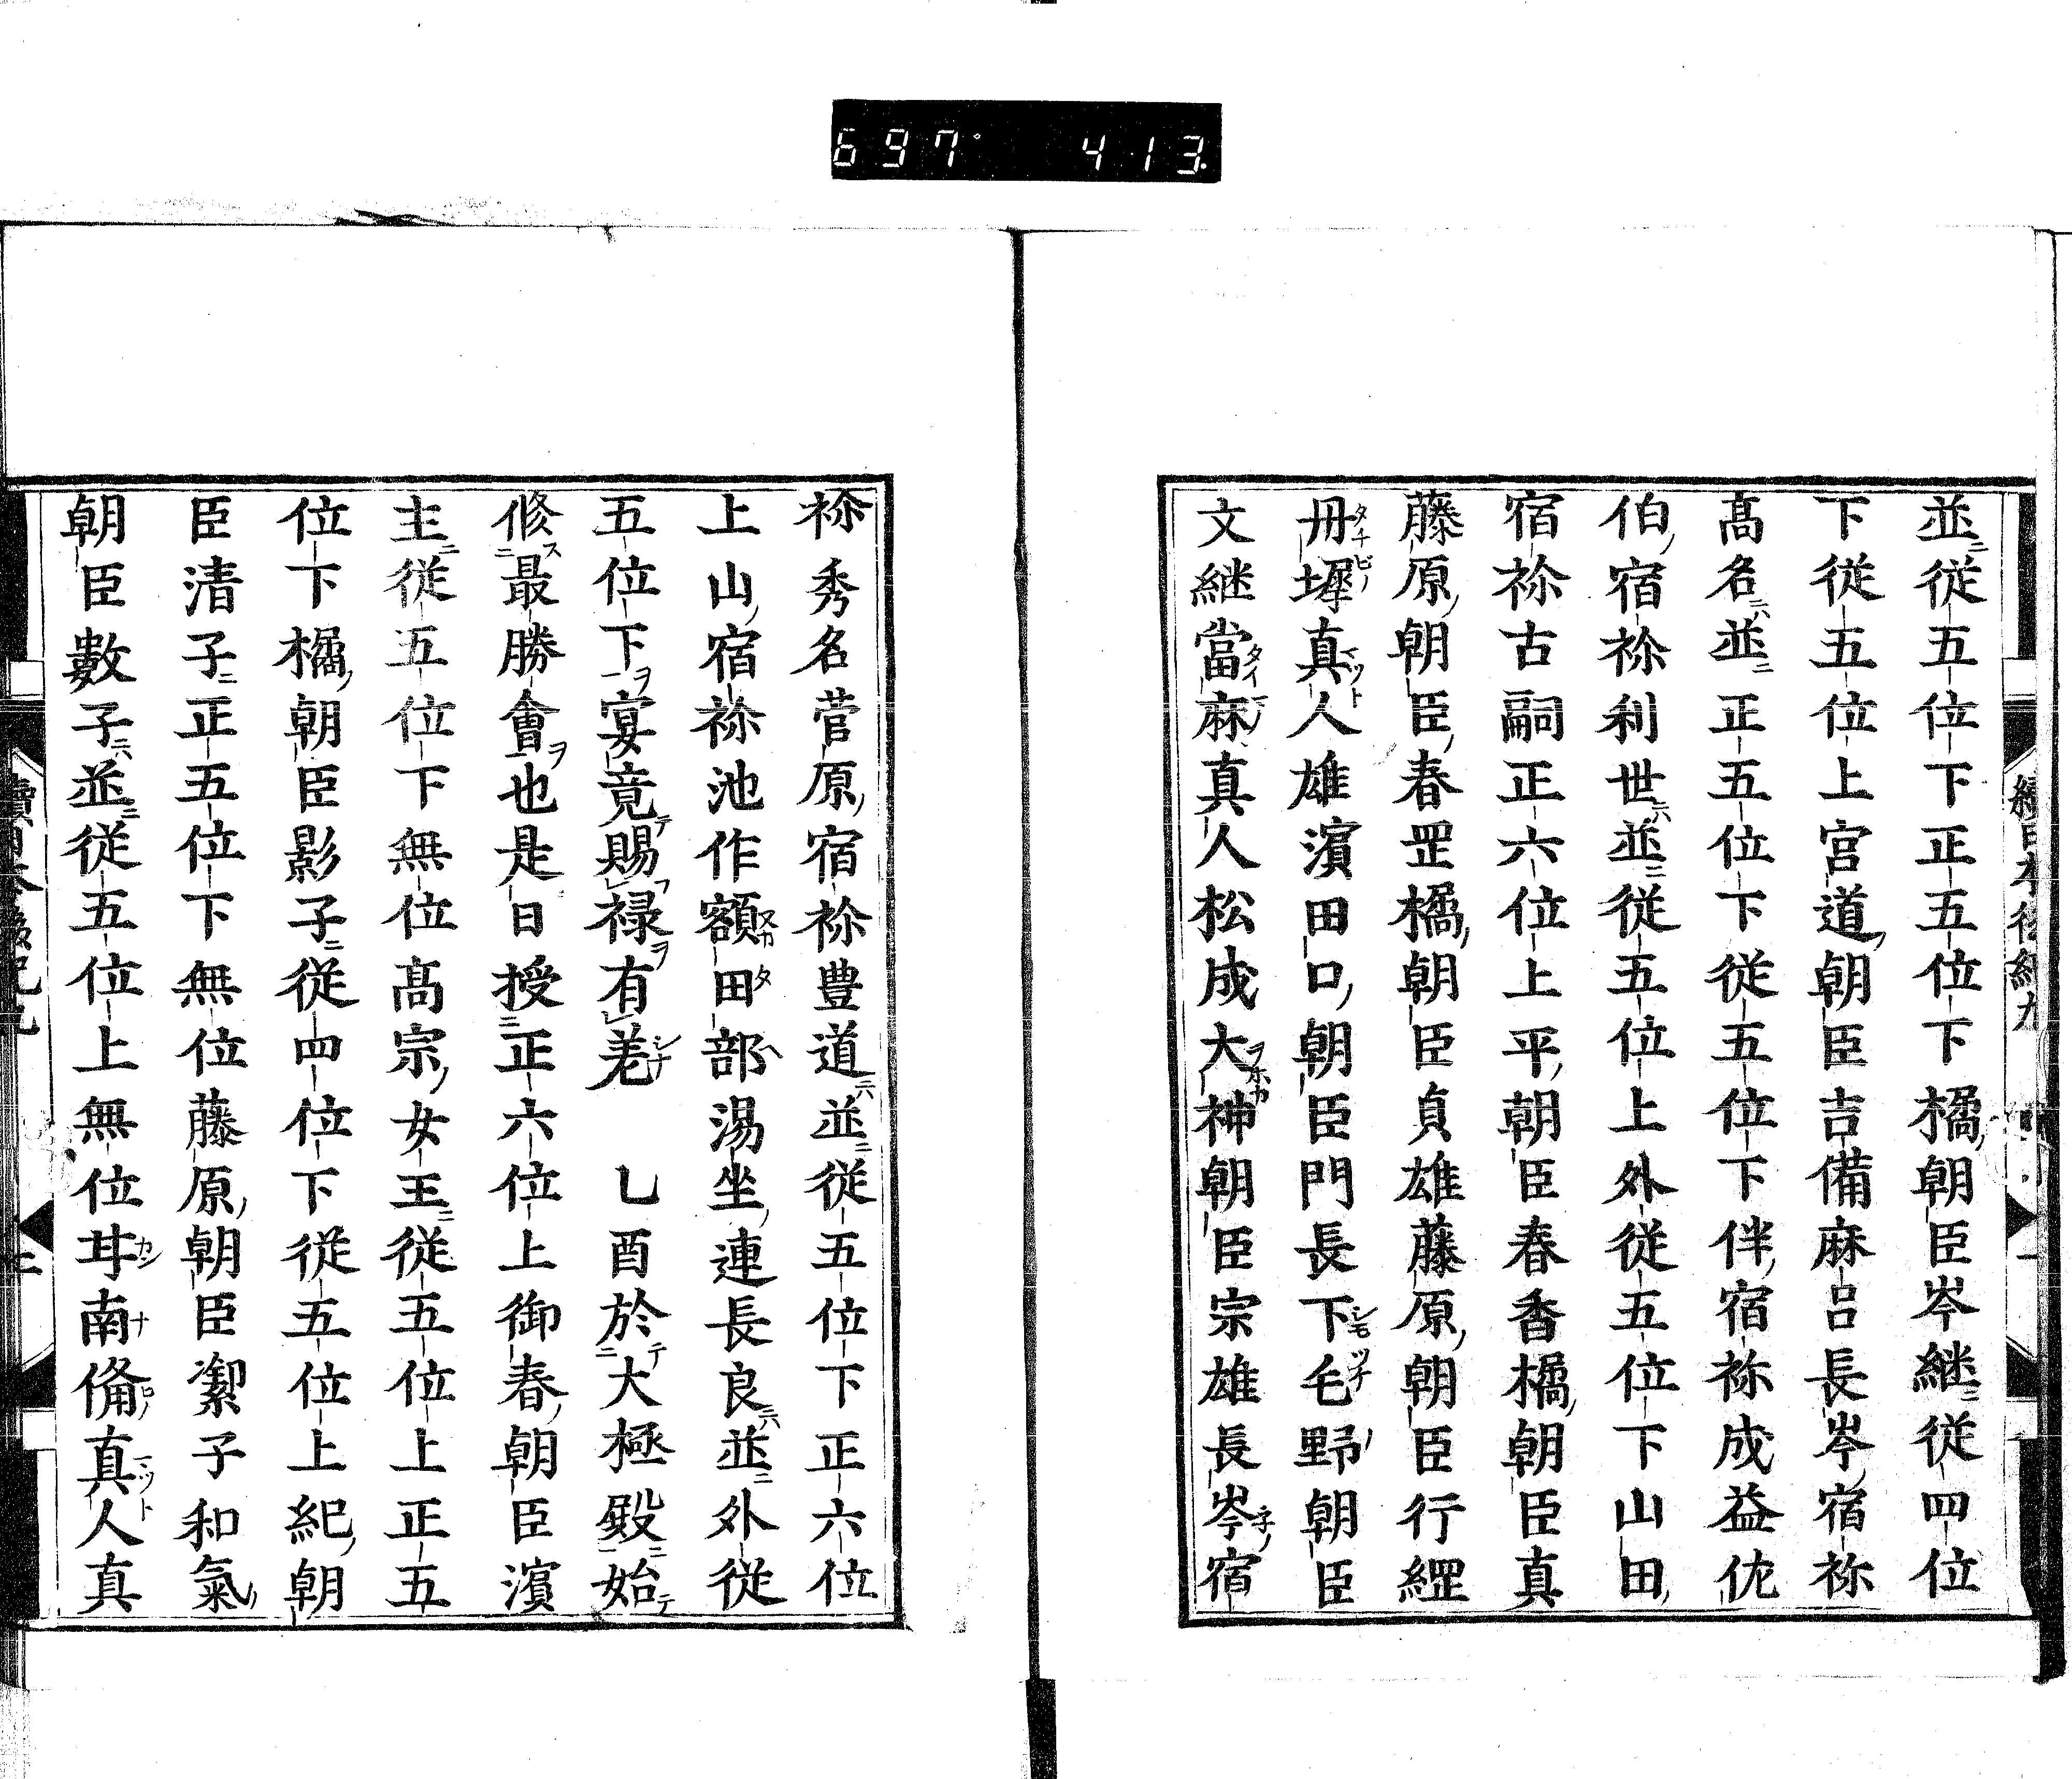 697° 413.
並従五位下正五位下橘朝臣岑継従四位
下従五位上宮道朝臣吉備麻呂長岑宿祢
髙名並正五位下従五位下伴宿祢成益佗
伯宿祢利世並従五位上外従五位下山田
宿祢古嗣正六位上平朝臣春香橘朝臣真
藤原朝臣春罡橘朝臣貞雄藤原朝臣行縄
丹墀真人雄濱田口朝臣門長下毛野朝臣
文継當麻真人松成大神朝臣宗雄長岑宿
祢秀名菅原宿祢豊道並従五位下正六位
上山宿祢池作額田部湯坐連長良並外従
五位下宴竟賜禄有差　乚酉於大極殿始
修最勝會也是日授正六位上御春朝臣濱
主従五位下無位髙宗女王従五位上正五
位下橘朝臣影子従四位下従五位上紀朝
臣清子正五位下無位藤原朝臣潔子和氣
朝臣數子並従五位上無位甘南備真人真